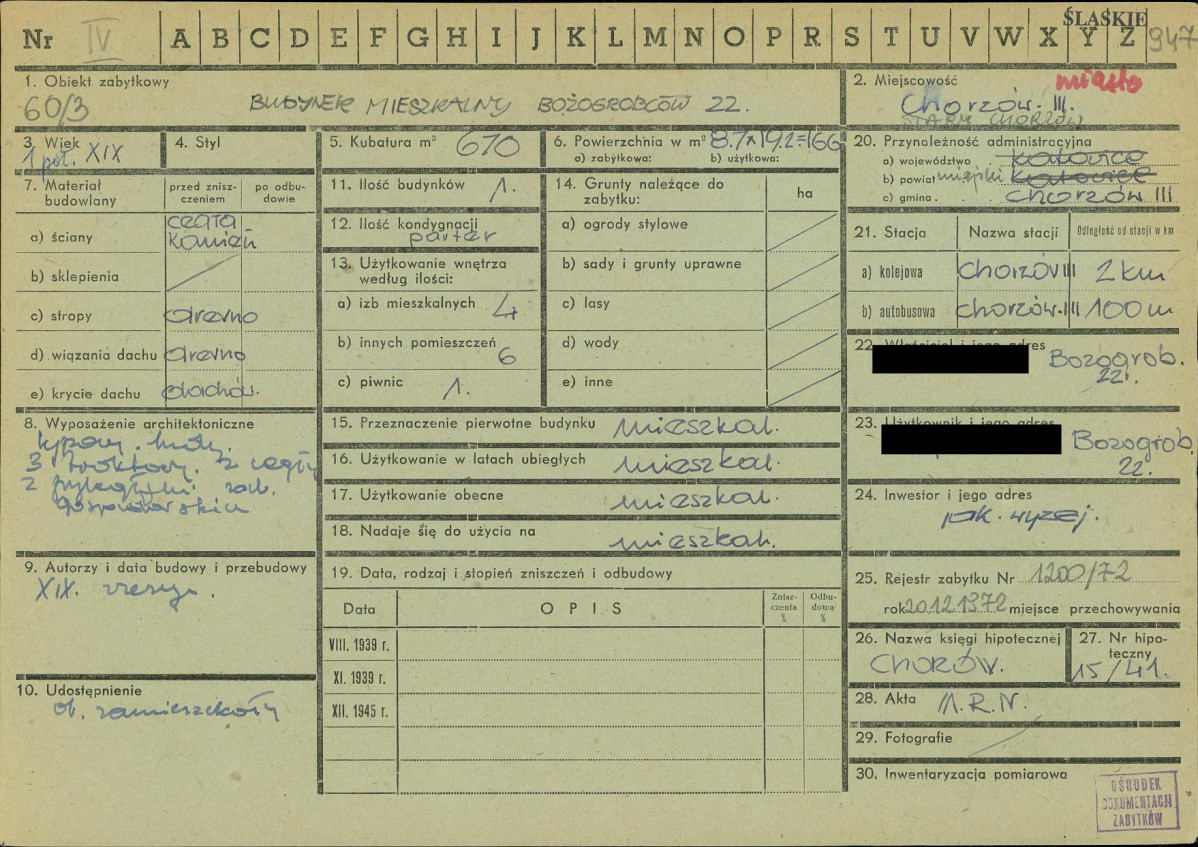 Nr IV A B C D E F G H I J K L M N O P R S T U V W X Y Z ŚLĄSKIE 947
1. Obiekt zabytkowy
60/3 BUDYNEK MIESZKALNY BOŻOGROBCÓW 22.
2. Miejscowość miasto
Chorzów. III.
STARY CHORZÓW
3. Wiek
1 poł. XIX
4. Styl
5. Kubatura m³ 670
6. Powierzchnia w m² 8.7x19.2=166
a) zabytkowa: b) użytkowa:
7. Materiał budowlany
przed zniszczeniem
po odbudowie
a) ściany cegła
kamień
b) sklepienia
c) stropy drewno
d) wiązania dachu drewno
e) krycie dachu dachów.
8. Wyposażenie architektoniczne
typowy
3 traktowy. z cegły
z
gospodarskim
9. Autorzy i data budowy i przebudowy
XIX.
10. Udostępnienie
ob. zamieszkały
11. Ilość budynków 1.
12. Ilość kondygnacji
parter
13. Użytkowanie wnętrza
według ilości:
a) izb mieszkalnych 4
b) innych pomieszczeń 6
c) piwnic 1.
14. Grunty należące do
zabytku:
ha
a) ogrody stylowe
b) sady i grunty uprawne
c) lasy
d) wody
e) inne
15. Przeznaczenie pierwotne budynku mieszkal.
16. Użytkowanie w latach ubiegłych mieszkal.
17. Użytkowanie obecne mieszkal.
18. Nadaje się do użycia na mieszkal.
19. Data, rodzaj i stopień zniszczeń i odbudowy
Data OPIS Zniszczenia % Odbudowa %
VIII. 1939 r.
XI. 1939 r.
XII. 1945 r.
20. Przynależność administracyjna
a) województwo Katowice
b) powiat miejski Katowice
c) gmina Chorzów III
21. Stacja Nazwa stacji Odległość od stacji w km
a) kolejowa Chorzów III 2 km
b) autobusowa Chorzów. III 100 m
22. Właściciel i jego adres
Bożogrob.
22.
23. Użytkownik i jego adres
Bożogrob.
22.
24. Inwestor i jego adres
jak. wyżej.
25. Rejestr zabytku Nr 1200/72
rok 20.12.1972 miejsce przechowywania
26. Nazwa księgi hipotecznej
CHORÓW.
27. Nr hipoteczny
15/41.
28. Akta M.R.N.
29. Fotografie
30. Inwentaryzacja pomiarowa
OŚRODEK
DOKUMENTACJI
ZABYTKÓW